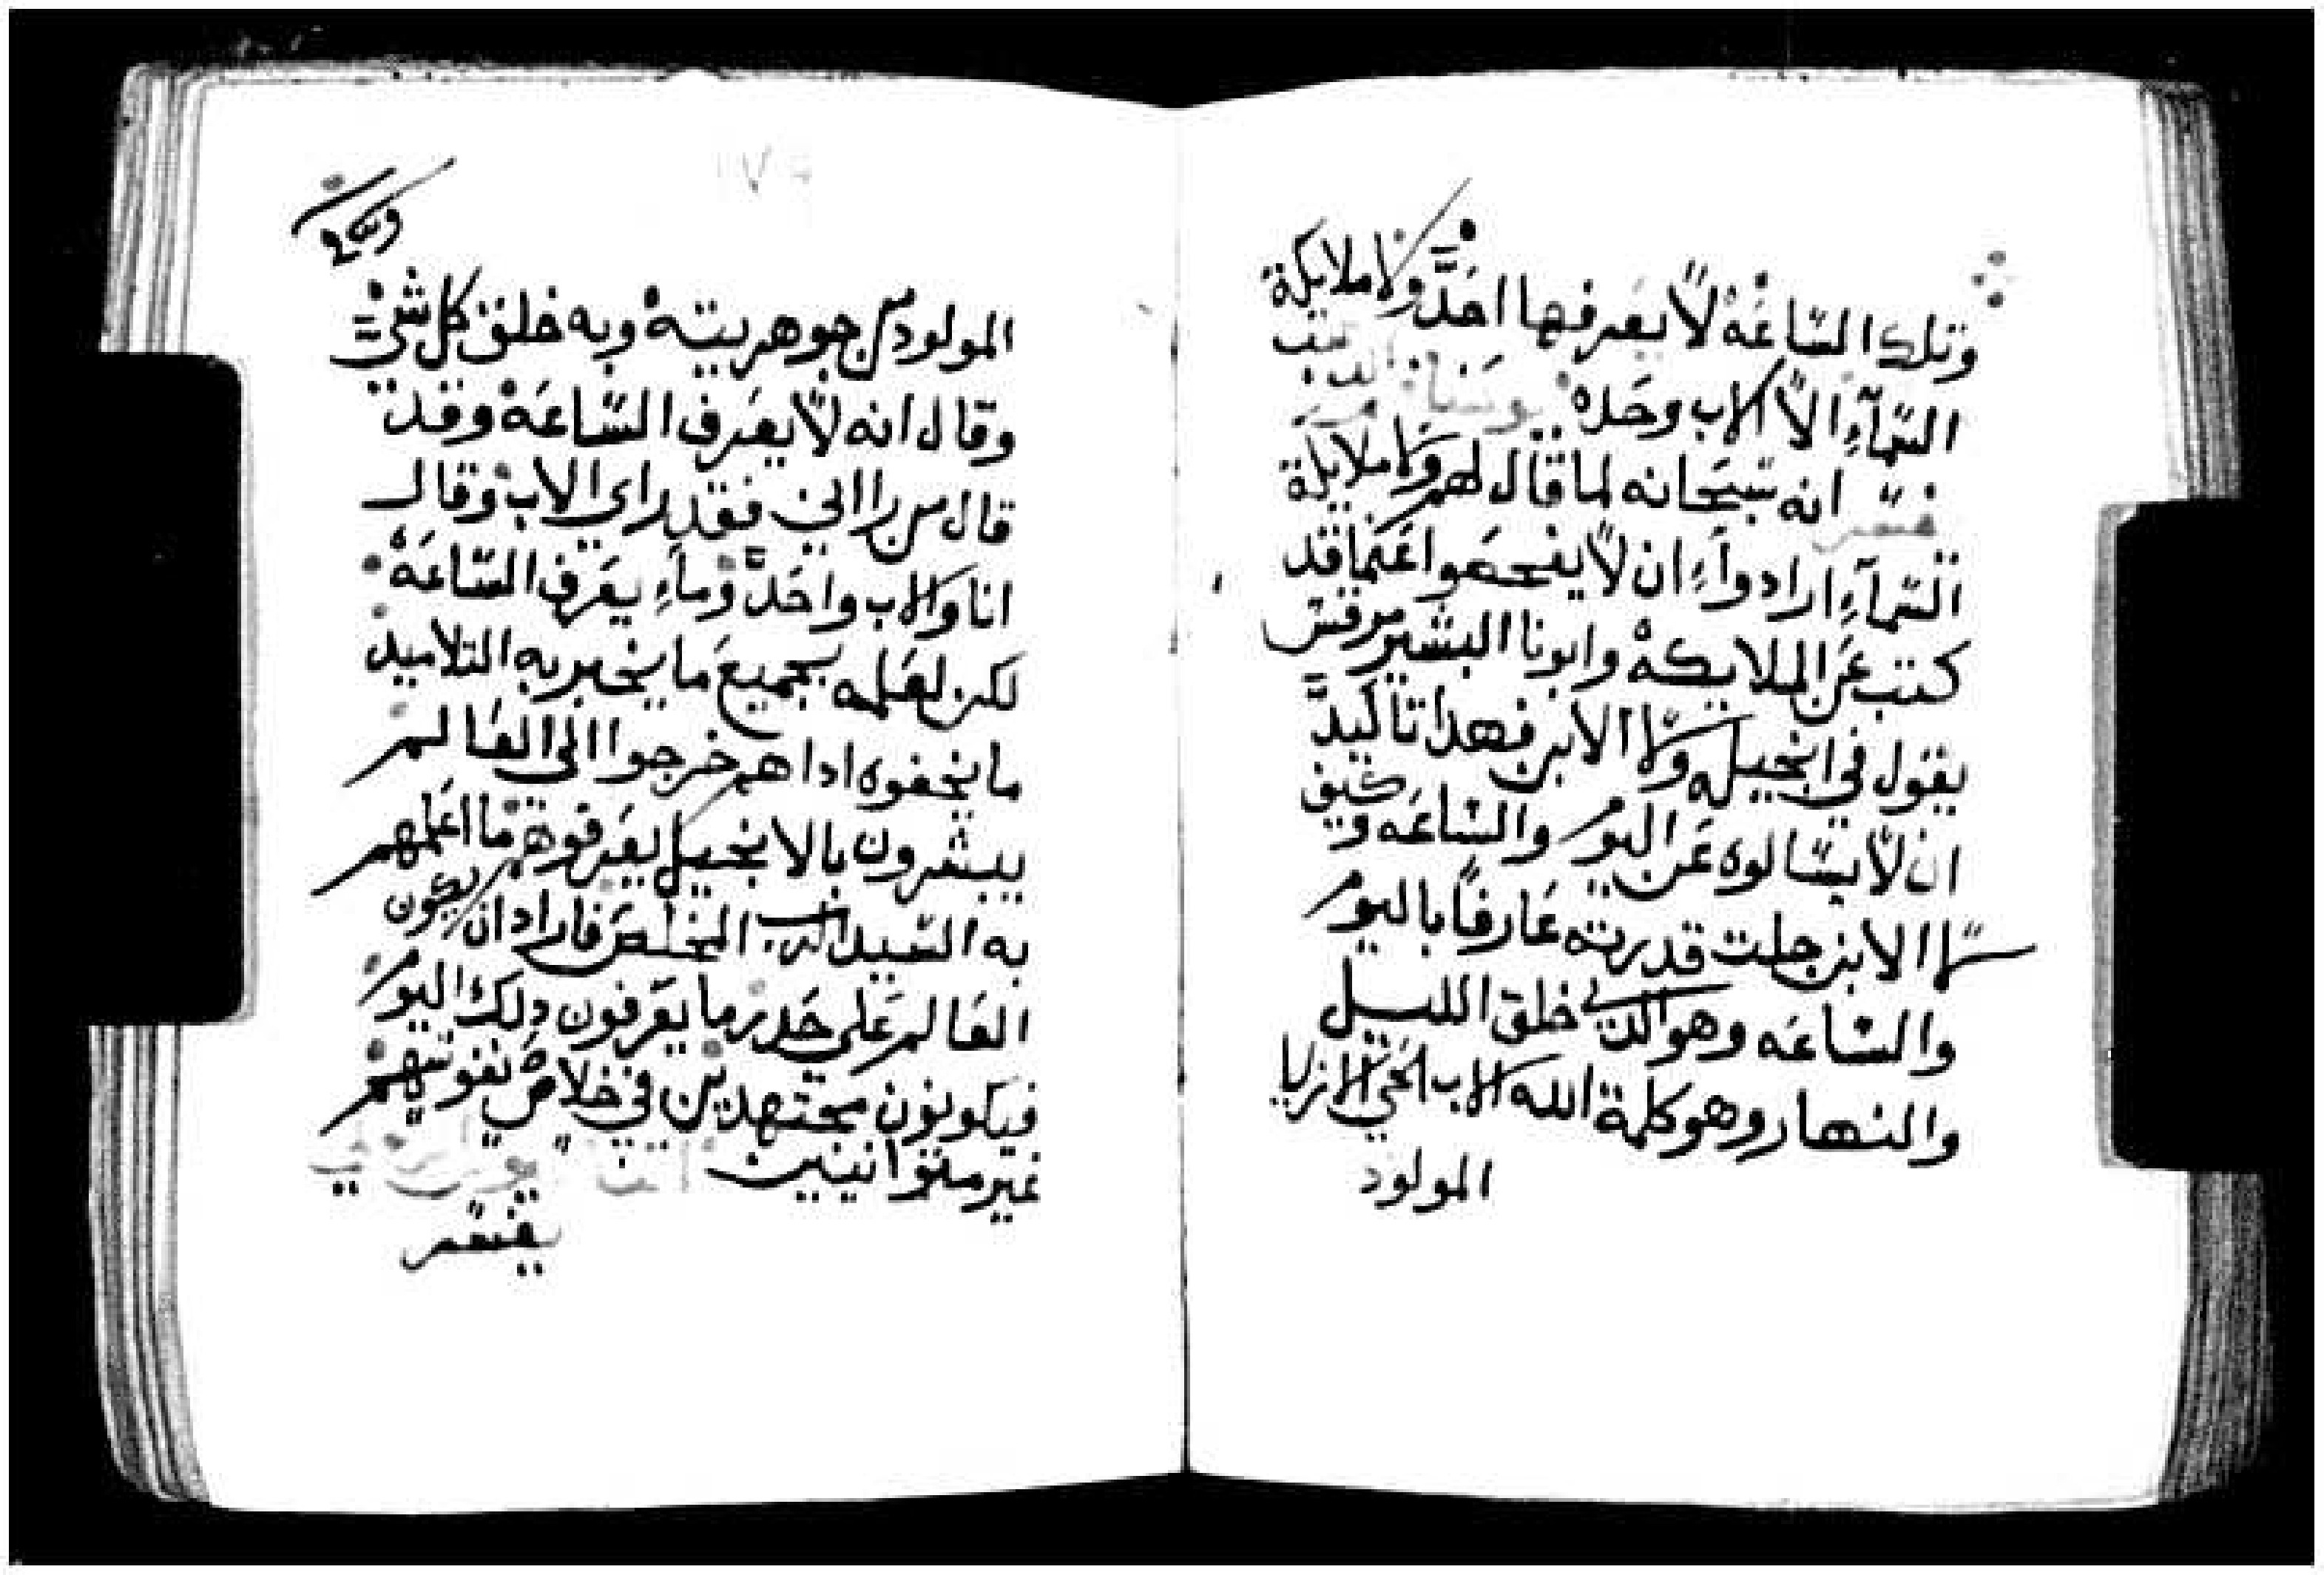 وتلك الساعه لا يعرفها احد ولا ملايكة
السمآء الا الاب وحده
فسر انه سبحانه لما قال لهم ولا ملايكة
السمآء ارادوا ان لا يفحصوا عنما قد
كتب عن الملايكه وابونا البشير مرقس
يقول في انجيله ولا الابن فهدا تاكيد
ان لا يسالوه عن اليوم والساعه وكيف
لا الابن جلت قدرته عارفا باليوم
والساعه وهو الدي خلق الليل
والنهار وهو كلمة الله الاب الحي الازلي
المولود
المولود من جوهريته وبه خلق كل شي
وقال انه لا يعرف الساعه وقد
قال من راني فقد راي الاب وقال
انا والاب واحد وماء يعرف الساعه
لكن لعلمه بجميع ما يخبر به التلاميد
ما يخفوه ادا هم خرجوا الي العالم
يبشرون بالانجيل يعرفوهم ما اعلمهم
به السيد الرب المخلص فاراد ان يكون
العالم علي حدر ما يعرفون دلك اليوم
فيكونون مجتهدين في خلاص نفوسهم
غير متوانيين
يفسر